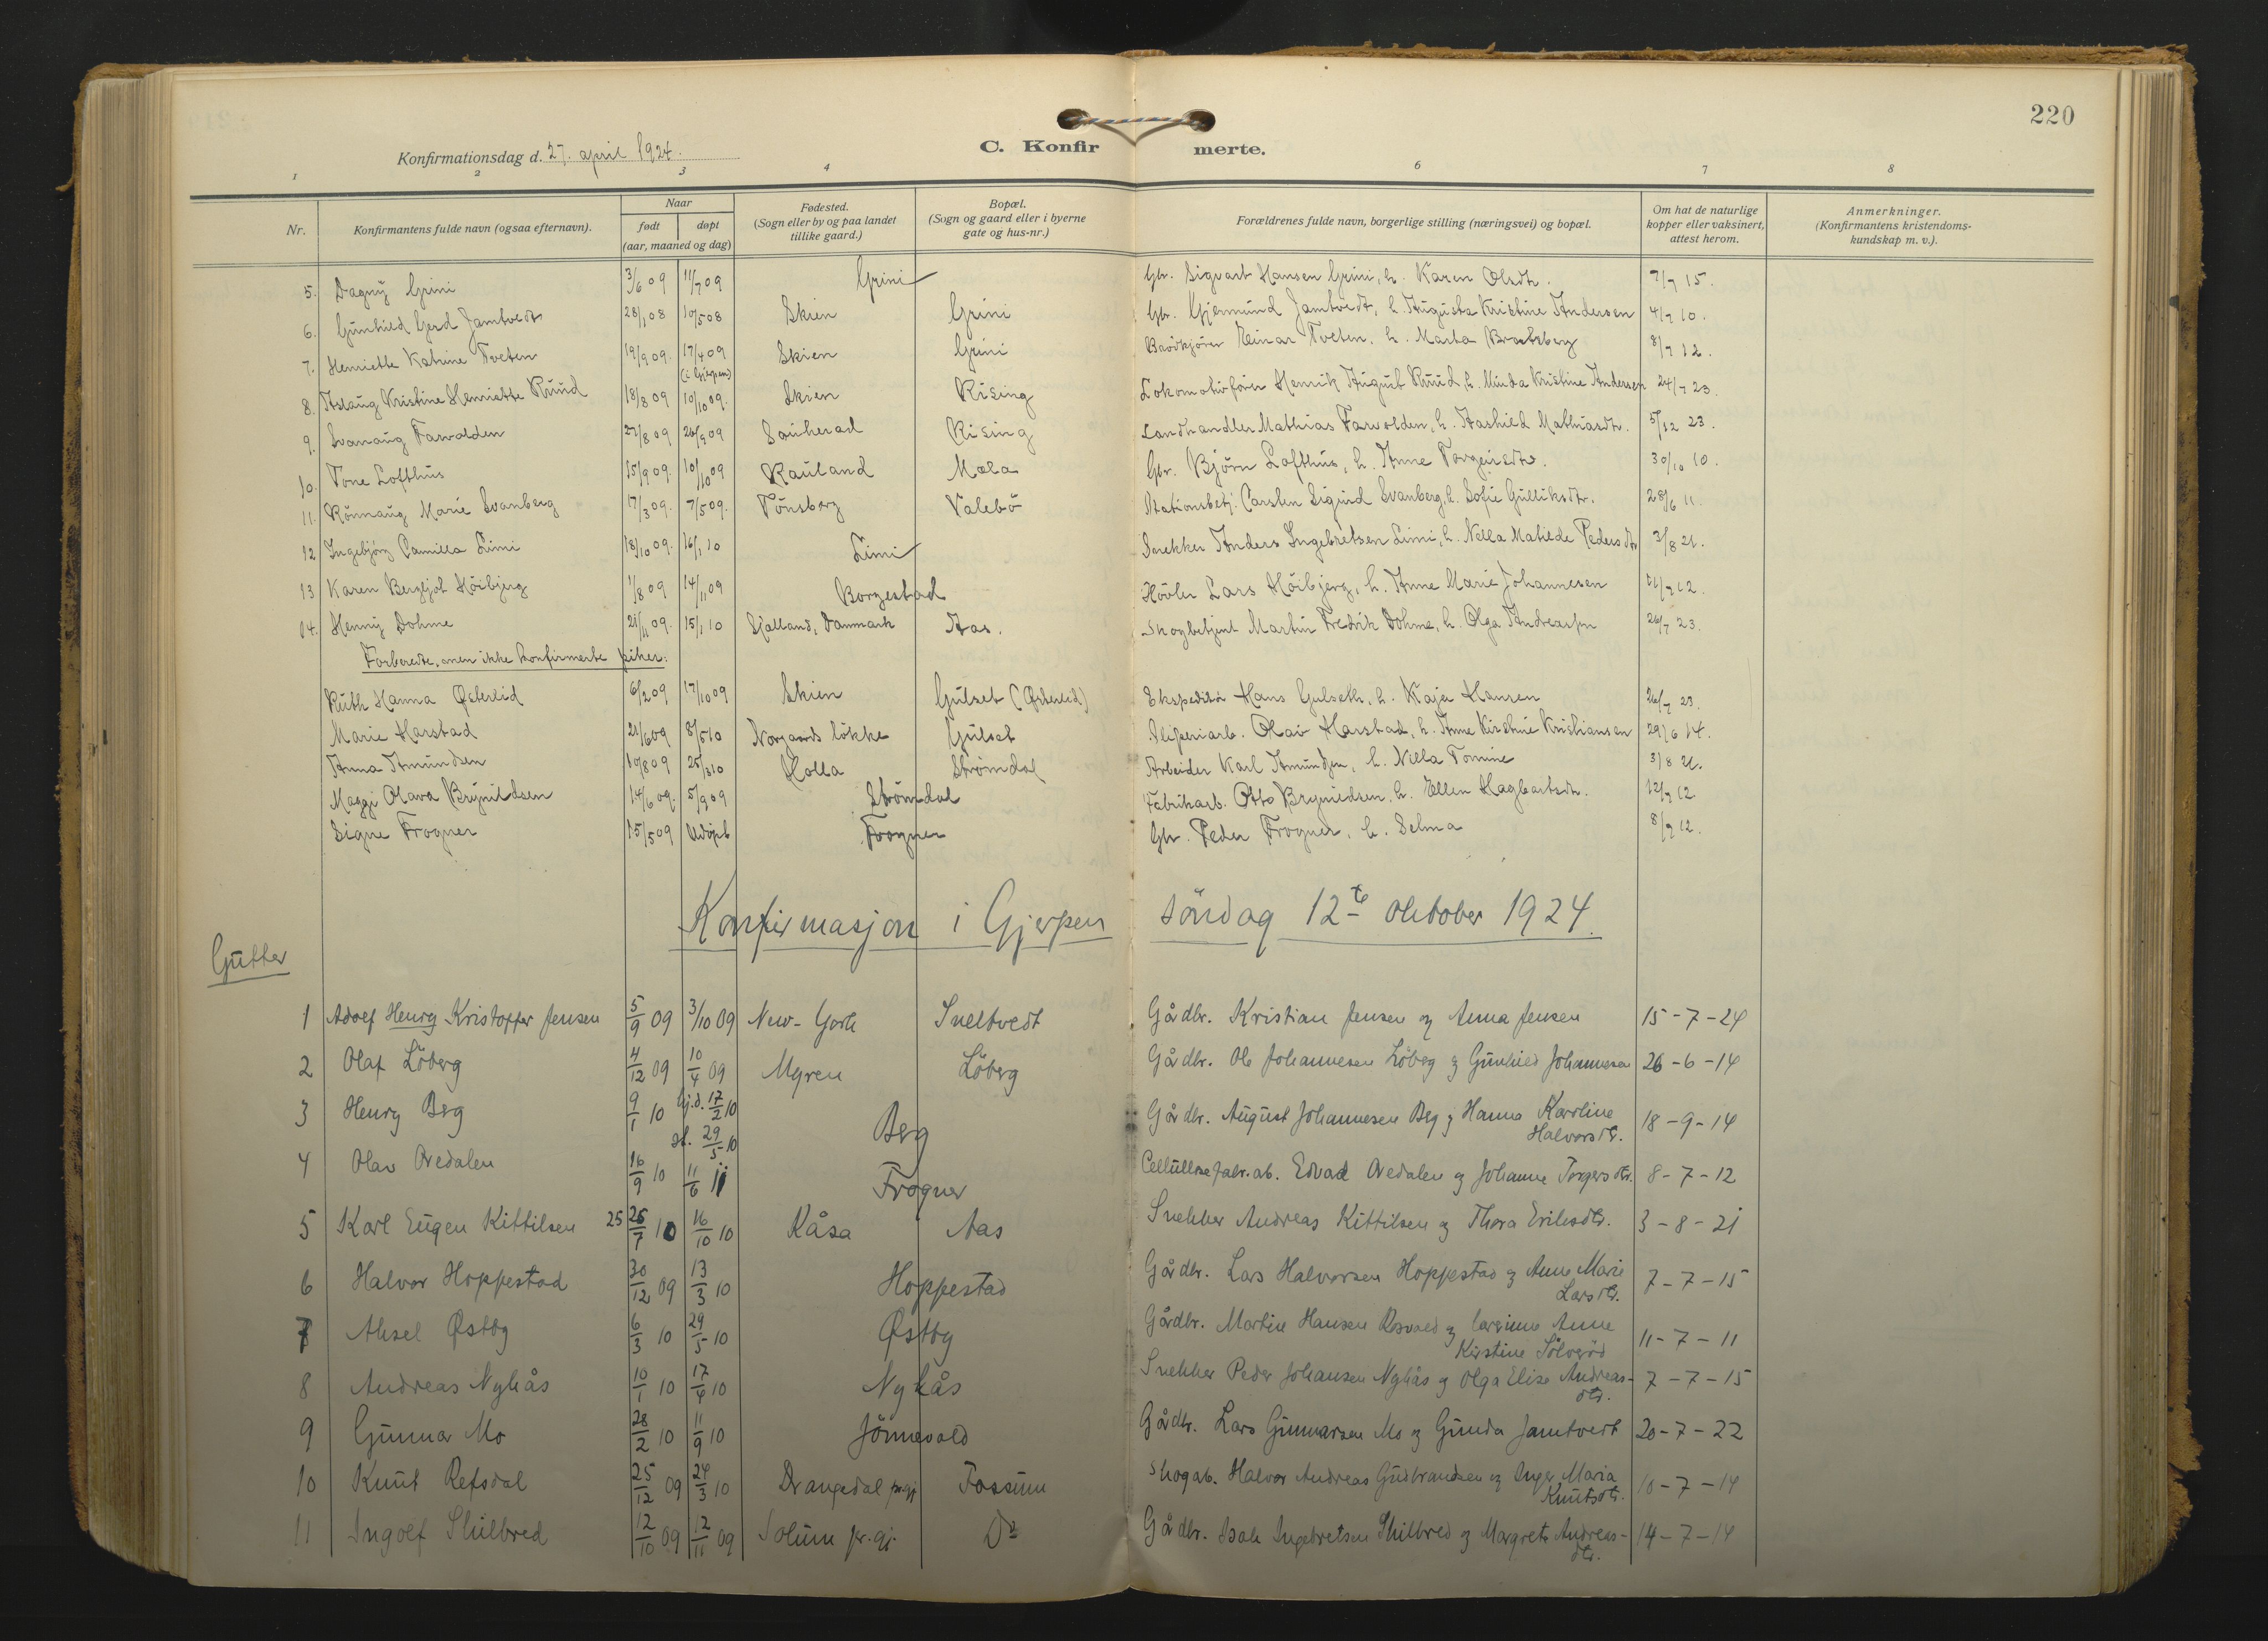 220
Konfirmationsdag d. 27. april 1924.
C. Konfir merte.
1 2 3 4 6 7 8
Nr. Konfirmantens fulde navn (ogsaa efternavn). Naar født døpt (aar, maaned og dag) Fødested. (Sogn eller by og paa landet tillike gaard.) Bopæl. (Sogn og gaard eller i byerne gate og hus-nr.) Forældrenes fulde navn, borgerlige stilling (næringsvei) og bopæl. Om hat de naturlige kopper eller vaksinert, attest herom. Anmerkninger. (Konfirmantens kristendoms-kundskap m. v.).
5. Dagny Grini 3/6 09 11/7 09 Grini Gbr. Sigvart Hansen Grini, h. Karen Olsdtr. 7/7 15.
6. Gunhild Gerd Jamtvedt 28/1 08 10/5 08 Skien Grini Gbr. Gjermund Jamtvedt, h. Augusta Kristine Andersen 4/7 10.
7. Henriette Katrine Tveten 19/9 09. 17/4 09 (i Gjerpen) Skien Grini Einar Tveten, h. Marta Bratsberg 8/7 12.
8. Aslaug Kristine Henriette Ruud 18/8 09 10/10 09. Skien Rising Lokomotivfører Henrik August Ruud, h. Minda Kristine Andersen 24/7 23.
9. Svanaug Farvolden 27/8 09 26/9 09 Sauherad Rising Landhandler Mathias Farvolden, h. Aashild Mathiasdtr. 5/12 23.
10. Tone Lofthus 15/9 09. 10/10 09 Rauland Mæla Gbr. Bjørn Lofthus, h. Anne Torgeirsdtr. 30/10 10.
11. Rönnaug Marie Svanberg 17/3 09. 7/5 09. Tönsberg Valebö Stationsbetj. Carsten Sigurd Svanberg, h. Sofie Gulliksdtr. 28/6 11.
12 Ingebjörg Camilla Limi 18/10 09. 16/1 10 Limi Snekker Anders Ingebretsen Limi, h. Nella Matilde Pedersdtr 3/8 21.
13 Karen Bergljot Höibjerg 1/8 09 14/11 09 Borgestad Hövler Lars Höibjerg, h. Anne Marie Johannesen 11/7 12.
14. Henny Dohme 21/11 09. 15/1 10 Sjælland, Danmark Aas. Skogbetjent Martin Fredrik Dohme, h. Olga Andreassen 26/7 23.
Forberedte, men ikke konfirmerte piker:
Ruth Hanna Østerlid 6/2 09 17/10 09 Skien Gulset (Østerlid) Ekspeditör Hans Gulseth, h. Kaja Hansen 26/7 23.
Marie Harstad 21/6 09 8/5 10 Norgaards løkke Gulset Sliperiarb. Olav Harstad, h. Anne Kirstine Kristiansen 29/6 14.
Anna Amundsen 10/8 09 25/3 10 Holla Strömdal Arbeider Karl Amundsen, h. Nilla Tomine 3/8 21.
Maggi Olava Brynildsen 14/6 09. 5/9 09 Strömdal Fabrikarb. Otto Brynildsen, h. Ellen Hagbartsdtr. 12/7 12
Signe Frogner 15/5 09 Udöpt Frogner Gbr. Peder Frogner, h. Selma 8/7 12.
Konfirmasjon i Gjerpen söndag 12te oktober 1924.
Gutter
1 Adolf Henry Kristoffer Jensen 5/9 09 3/10 09 New-York Sneltvedt Gårdbr. Kristian Jensen og Anna Jensen 15-7-24
2 Olaf Löberg 4/12 09 10/4 09 Myren Löberg Gårdbr. Ole Johannesen Löberg og Gunhild Johannesen 26-6-14
3 Henry Berg 9/1 10 hj.d. 17/2 10 st. 29/5 10 Berg Gårdbr. August Johannesen Berg og Hanna Karoline Halvorsdtr. 18-9-14
4 Olav Øvedalen 16/9 10 11/6 11 Frogner Cellulosefabr.ab. Edvard Øvedalen og Johanne Torgersdtr. 8-7-12
5 Karl Eugen Kittilsen 25 25/7 10 16/10 10 Kåsa Aas Snekker Andreas Kittilsen og Thora Eriksdtr. 3-8-21
6 Halvor Hoppestad 30/12 09 13/3 10 Hoppestad Gårdbr. Lars Halvorsen Hoppestad og Anne Marie Larsdtr. 7-7-15
7 Aksel Østby 6/3 10 29/5 10 Østby Gårdbr. Martin Hansen Rosvald og Anne Kirstine 11-7-11
8 Andreas Nykås 10/1 10 17/4 10 Nykås Snekker Peder Johansen Nykås og Olga Elise Andreas-dtr. 7-7-15
9 Gunnar Mo 28/2 10 11/9 10 Jönnevald Gårdbr. Lars Gunnarsen Mo og Gunda Jamtvert 20-7-22
10 Knut Refsdal 25/12 09 24/3 10 Drangedal pr.gj. Fossum Skogab. Halvor Andreas Gudbrandsen og Inger Maria Knutsdtr. 10-7-14
11 Ingolf Skilbred 12/10 09 12/11 09 Solum pr.gj. Do Gårdbr. Isak Ingebretsen Skilbred og Margrete Andreas-dtr. 14-7-14